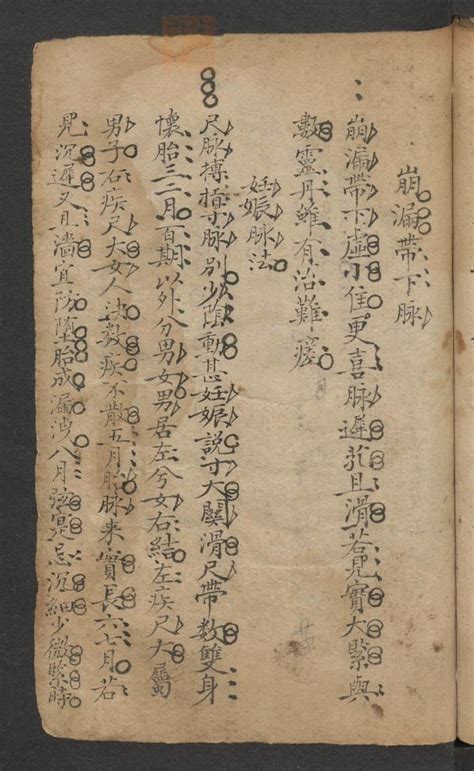 崩漏帶下脉
崩漏帶下虛小佳更喜脉遲且滑若見實大緊與
數靈丹雖有治難瘥
妊娠脉法
尺脉搏寸脉別少陰動甚妊娠説寸大關滑尺帶数雙身
懷胎三二月百期以外分男女男居左兮女右結左疾尺大屬
男子右疾尺大女人訣数疾不散五月胎脉来實長六七月若
見沉遲又且濇宜防墮胎成漏洩八月弦寔忌沉細少微緊時